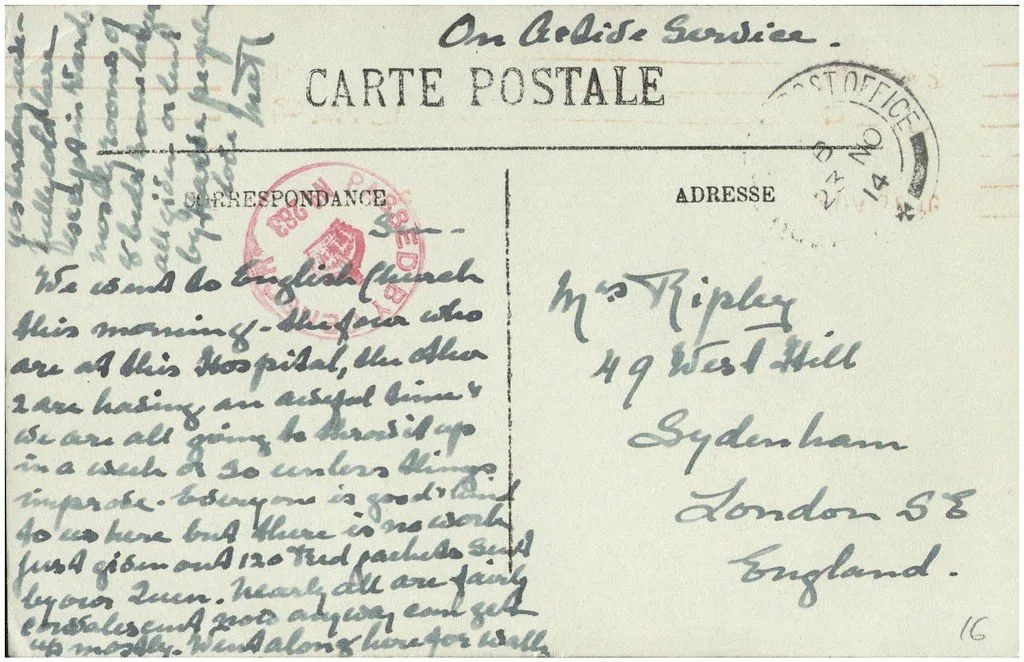 On Active Service.
CARTE POSTALE
POST OFFICE
D
23 NO
14
CORRESPONDANCE
ADRESSE
PASSED BY CENSOR
No 283
Sun -
We went to English Church
this morning - the four who
are at this Hospital, the other
2 are having an awful time &
we are all going to throw it up
in a week or so unless things
improve. Everyone is good & kind
to us here but there is no work
just given out 120 Red jackets sent
by our Queen. Nearly all are fairly
convalescent now anyway can get
up mostly. Went along here for walk
yesterday
bully cold here
in Wards
rooms of
8 beds some huge
all given or lent
by people
Mrs Ripley
49 West Hill
Sydenham
London SE
England.
16